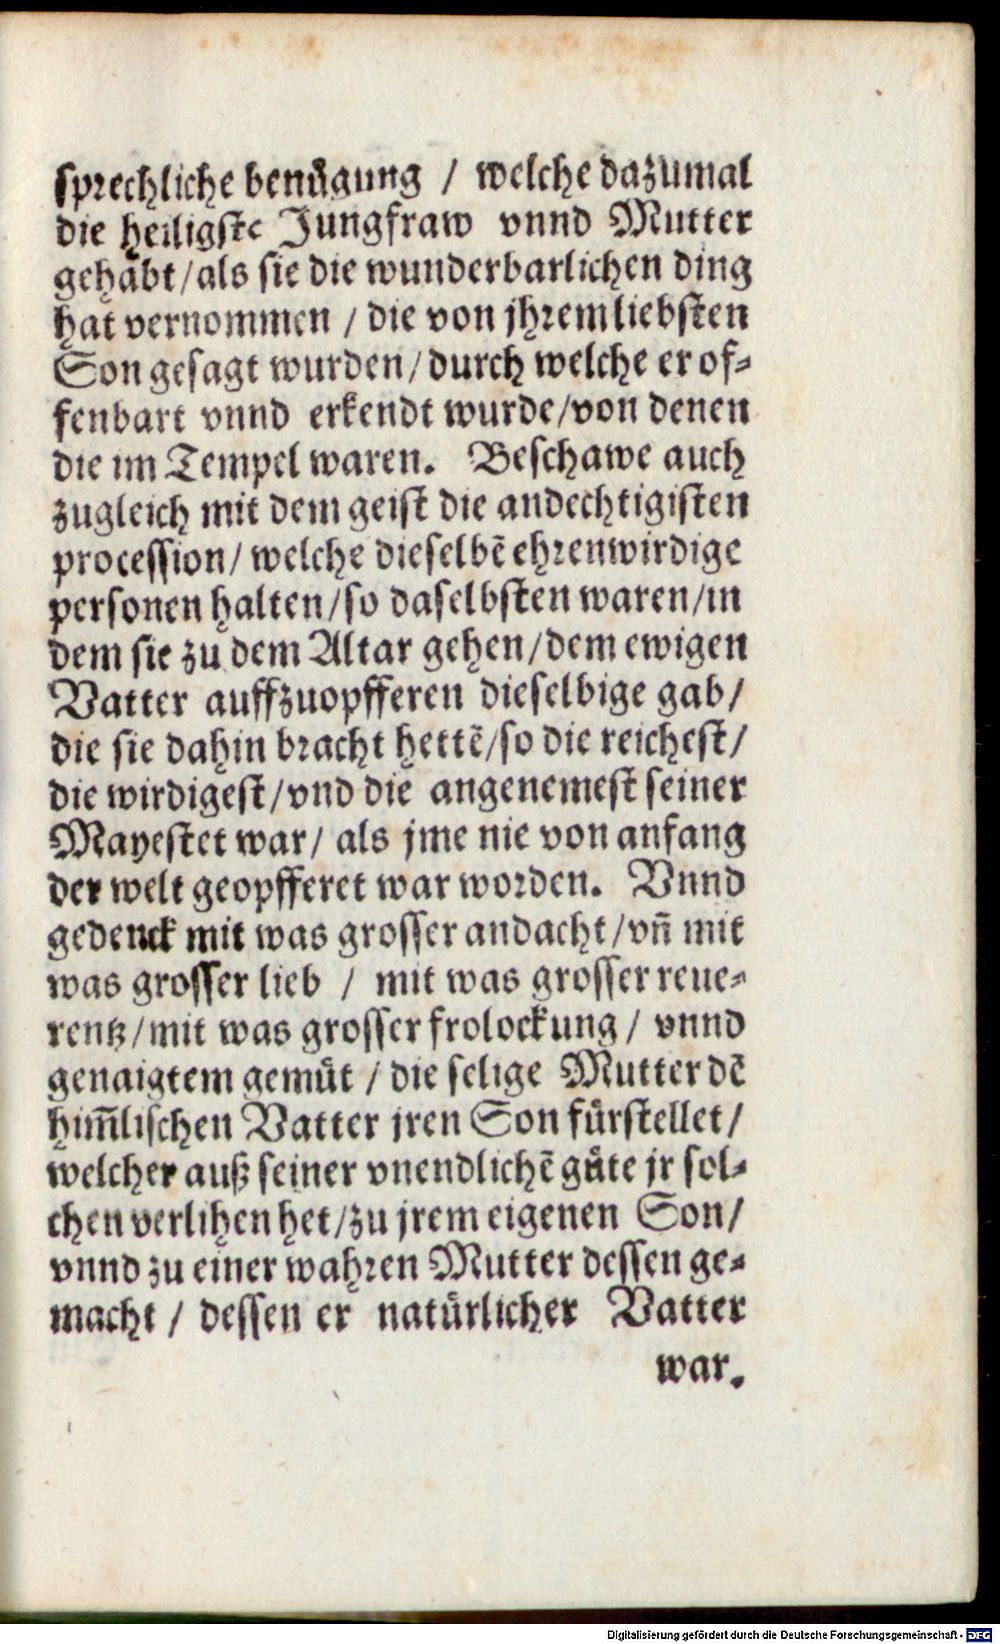 sprechliche benuͤgung / welche dazumal
die heiligste Jungfraw vnnd Mutter
gehabt/als sie die wunderbarlichen ding
hat vernommen / die von jhrem liebsten
Son gesagt wurden/durch welche er of⸗
fenbart vnnd erkendt wurde/von denen
die im Tempel waren. Beschawe auch
zugleich mit dem geist die andechtigisten
procession/ welche dieselbẽ ehrenwirdige
personen halten/so daselbsten waren/in
dem sie zu dem Altar gehen/dem ewigen
Vatter auffzuopfferen dieselbige gab/
die sie dahin bracht hettẽ/so die reichest/
die wirdigest/vnd die angenemest seiner
Mayestet war/ als jme nie von anfang
der welt geopfferet war worden. Vnnd
gedenck mit was grosser andacht/vñ mit
was grosser lieb / mit was grosser reue⸗
rentz/mit was grosser frolockung / vnnd
genaigtem gemuͤt / die selige Mutter dẽ
him̃lischen Vatter jren Son fuͤrstellet/
welcher auß seiner vnendlichẽ guͤte jr sol⸗
chen verlihen het/zu jrem eigenen Son/
vnnd zu einer wahren Mutter dessen ge⸗
macht / dessen er natuͤrlicher Vatter
war.
Digitalisierung gefördert durch die Deutsche Forschungsgemeinschaft - DFG